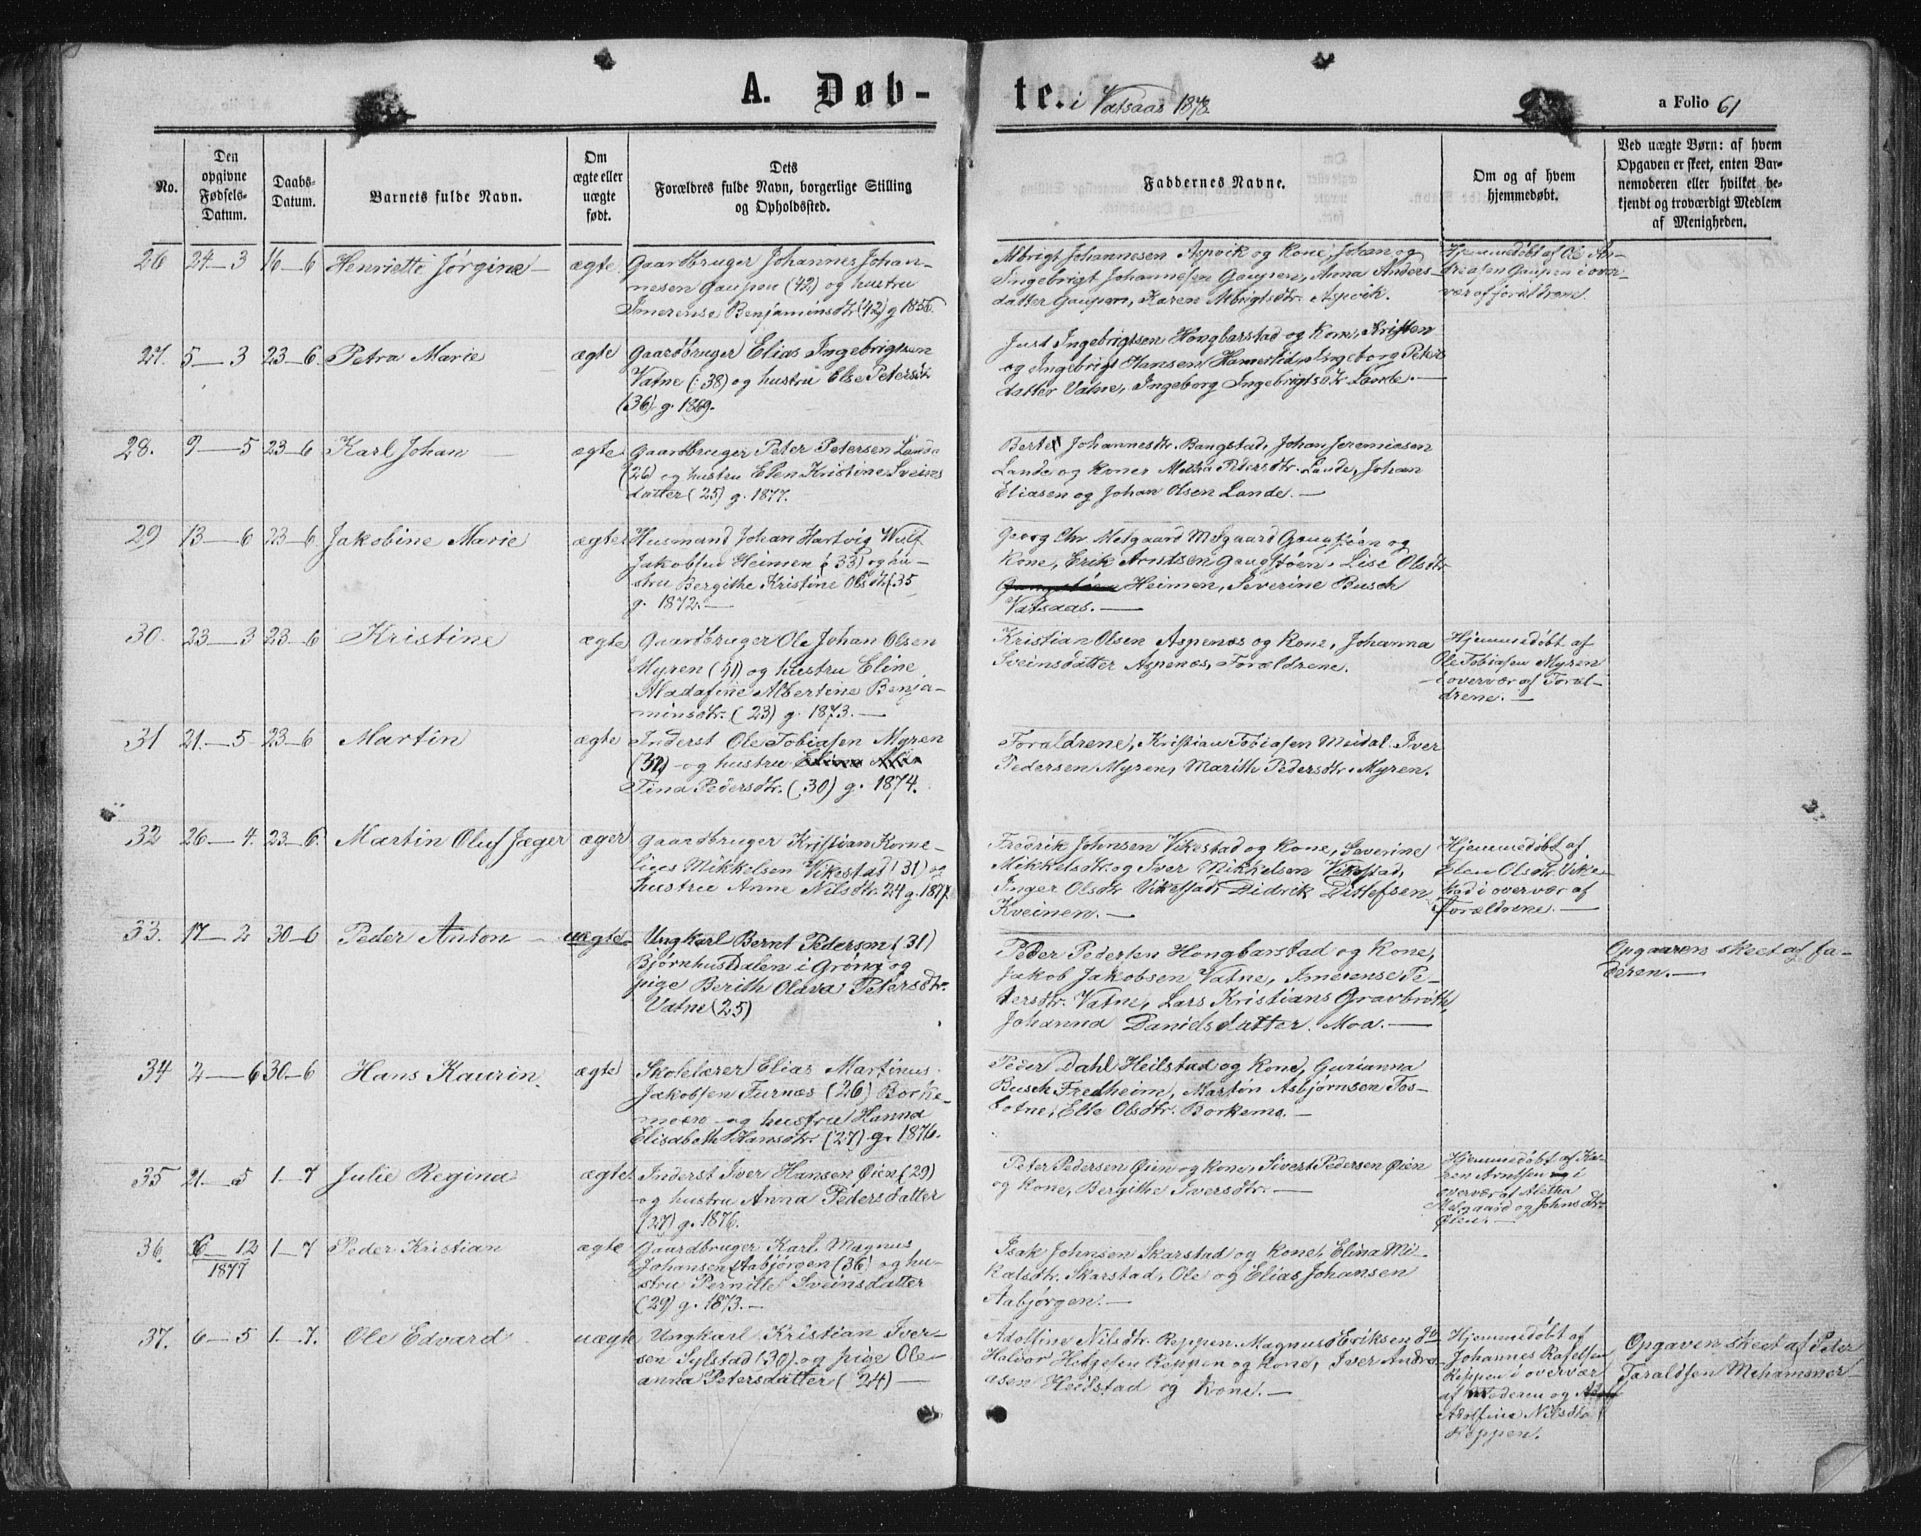 A. Døb-
te. i Vatsaas 1878
a Folio 61
No.
Den opgivne Fødsels-Datum.
Daabs-Datum.
Barnets fulde Navn.
Om ægte eller uægte født.
Dets Forældres fulde Navn, borgerlige Stilling og Opholdssted.
Faddernes Navne.
Om og af hvem hjemmedøbt.
Ved uægte Børn: af hvem Opgaven er skeet, enten Barnemoderen eller hvilket bekjendt og troværdigt Medlem af Menigheden.
26 24-3 16-6 Henriette Jørgine ægte
Gaardbruger Johannes Johan-
nesen Gaupen (42) og hustru
Imerense Benjaminsdtr (42) g 1856.
Albrigt Johannesen Aspvik og Kone, Johan og
Ingebrigt Johannesen Gaupen, Anna Anders-
datter Gaupen, Karen Albrigtsdtr. Aspvik.
Hjemmedøbt af Ole An-
dreasen Gaupen i over-
vær af forældrene.
27. 5-3 23-6. Petra Marie ægte
Gaardbruger Elias Ingebrigtsen
Vatne (38) og hustru Else Petersdtr
(36) g. 1869.
Just Ingebrigtsen Hongbarstad og Kone, Kristen
og Ingebrigt Hansen Hamestid, Ingeborg Peters
datter Vatne, Ingeborg Ingebrigtsdtr Lande.
28. 9-5 23-6 Karl Johan ægte
Gaardbruger Peter Petersen Lande
(26) og hustru Elen Kristine Sveins
datter (25) g. 1877.
Johannesdtr. Bangstad, Johan Jeremiasen
Lande og Koner Petersdtr. Lande, Johan
Eliasen og Johan Olsen Lande.
29 13-6 23-6 Jakobine Marie ægte
Husmand Johan Hartvig Wulf
Jakobsen Heimen (33) og hu-
stru Bergithe Kristine Olsdtr (35
g. 1872.
Georg Chr. Melgaard Gangstøen og
Kone, Erik Arntsen Gangstøen, Lise Olsdtr
Heimen, Severine Busch
Vatsaas.
30. 23-3 23-6 Kristine ægte
Gaardbruger Ole Johan Olsen
Myren (41) og hustru Eline
Madafine Albertine Benja-
minsdtr. (23) g. 1873.
Kristian Olsen Aspenæs og Kone, Johanna
Sveinsdatter Aspenæs, Forældrene.
Hjemmedøbt af
Ole Tobiasen Myren
i overvær af Foræl-
drene.
31 21-5 23-6 Martin ægte
Inderst Ole Tobiasen Myren
(32) og hustru
Tina Pedersdtr. (30) g. 1874.
Forældrene, Kristian Tobiasen Meidal, Iver
Pedersen Myren, Marith Pedersdtr. Myren.
32 26-4. 23-6. Martin Oluf Jæger æger
Gaardbruger Kristian Korne-
lius Mikkelsen Vikestad (31) og
hustru Anne Nilsdtr. 24 g. 1877.
Fredrik Johnsen Vikestad og Kone, Severine
Mikkelsdtr. og Iver Mikkelsen Vikestad,
Inger Olsdtr Vikestad, Didrik Dittefsen
Kveinen.
Hjemmedøbt af
Elen Olsdtr. Vike-
stad i overvær af
Forældrene.
33. 17-2 30-6 Peder Anton uægte
Ungkarl Bernt Pedersen (31)
Bjørnhusdalen i Grong og
pige Berith Olava Petersdtr.
Vatne (25)
Peder Pedersen Hongbarstad og Kone,
Jakob Jakobsen Vatne, Imerense Pe-
dersdtr. Vatne, Lars Kristians Gravbrøth,
Johanna Danielsdatter Moa.
Opgaven skeet af fa-
deren.
34 2-6 30-6 Hans Kaurin. ægte
Skolelærer Elias Martinus
Jakobsen Furnæs (26) Borke-
moen og hustru Hanna
Elisabeth Hansdtr. (27) g. 1876.
Peder Dahl Heilstad og Kone, Gurianna
Busch Fredheim, Martin Asbjørnsen Tos-
botne, Else Olsdtr. Borkemo.
35 21-5 1-7 Julie Regina ægte
Inderst Iver Hansen Øien (29)
og hustru Anna Pedersdatter
(27) g. 1876.
Peter Pedersen Øien og Kone, Sivert Pedersen Øien
og Kone, Bergithe Iversdtr.
Hjemmedøbt af Ka-
ren Arntsen i
overvær af Aletha
Melgaard og Johns dtr.
Øien.
36. 6-12 1877 1-7 Peder Kristian ægte
Gaardbruger Karl Magnus
Johansen Aabjørgen (36) og hu-
stru Pernille Sveinsdatter
(29) g. 1873.
Isak Johnsen Skarstad og Kone, Elina Mi-
kalsdtr. Skarstad, Ole og Elias Johansen
Aabjørgen.
37. 6-5 1-7. Ole Edvard uægte
Ungkarl Kristian Iver-
sen Sylstad (30) og pige Ole-
anna Petersdatter (24)
Adolfine Nilsdtr. Reppen, Magnus Eriksen
Halvor Helgesen Reppen og Kone, Iver Andre-
asen Heilstad og Kone.
Hjemmedøbt af
Johannes Rafelsen
Reppen i overvær
af Moderen og
Adolfine Nilsdtr
Reppen.
Opgaven skeet af Peter
Taraldsen